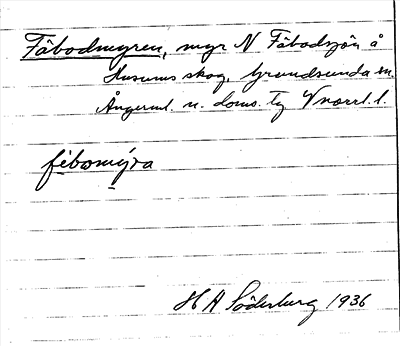 Fäbodmyren, myr N Fäbodsjön å
Husums skog, Grundsunda sn.
Ångerml. n. doms. tg Vnorrl. l.
fèbomýra
H A Söderberg 1936